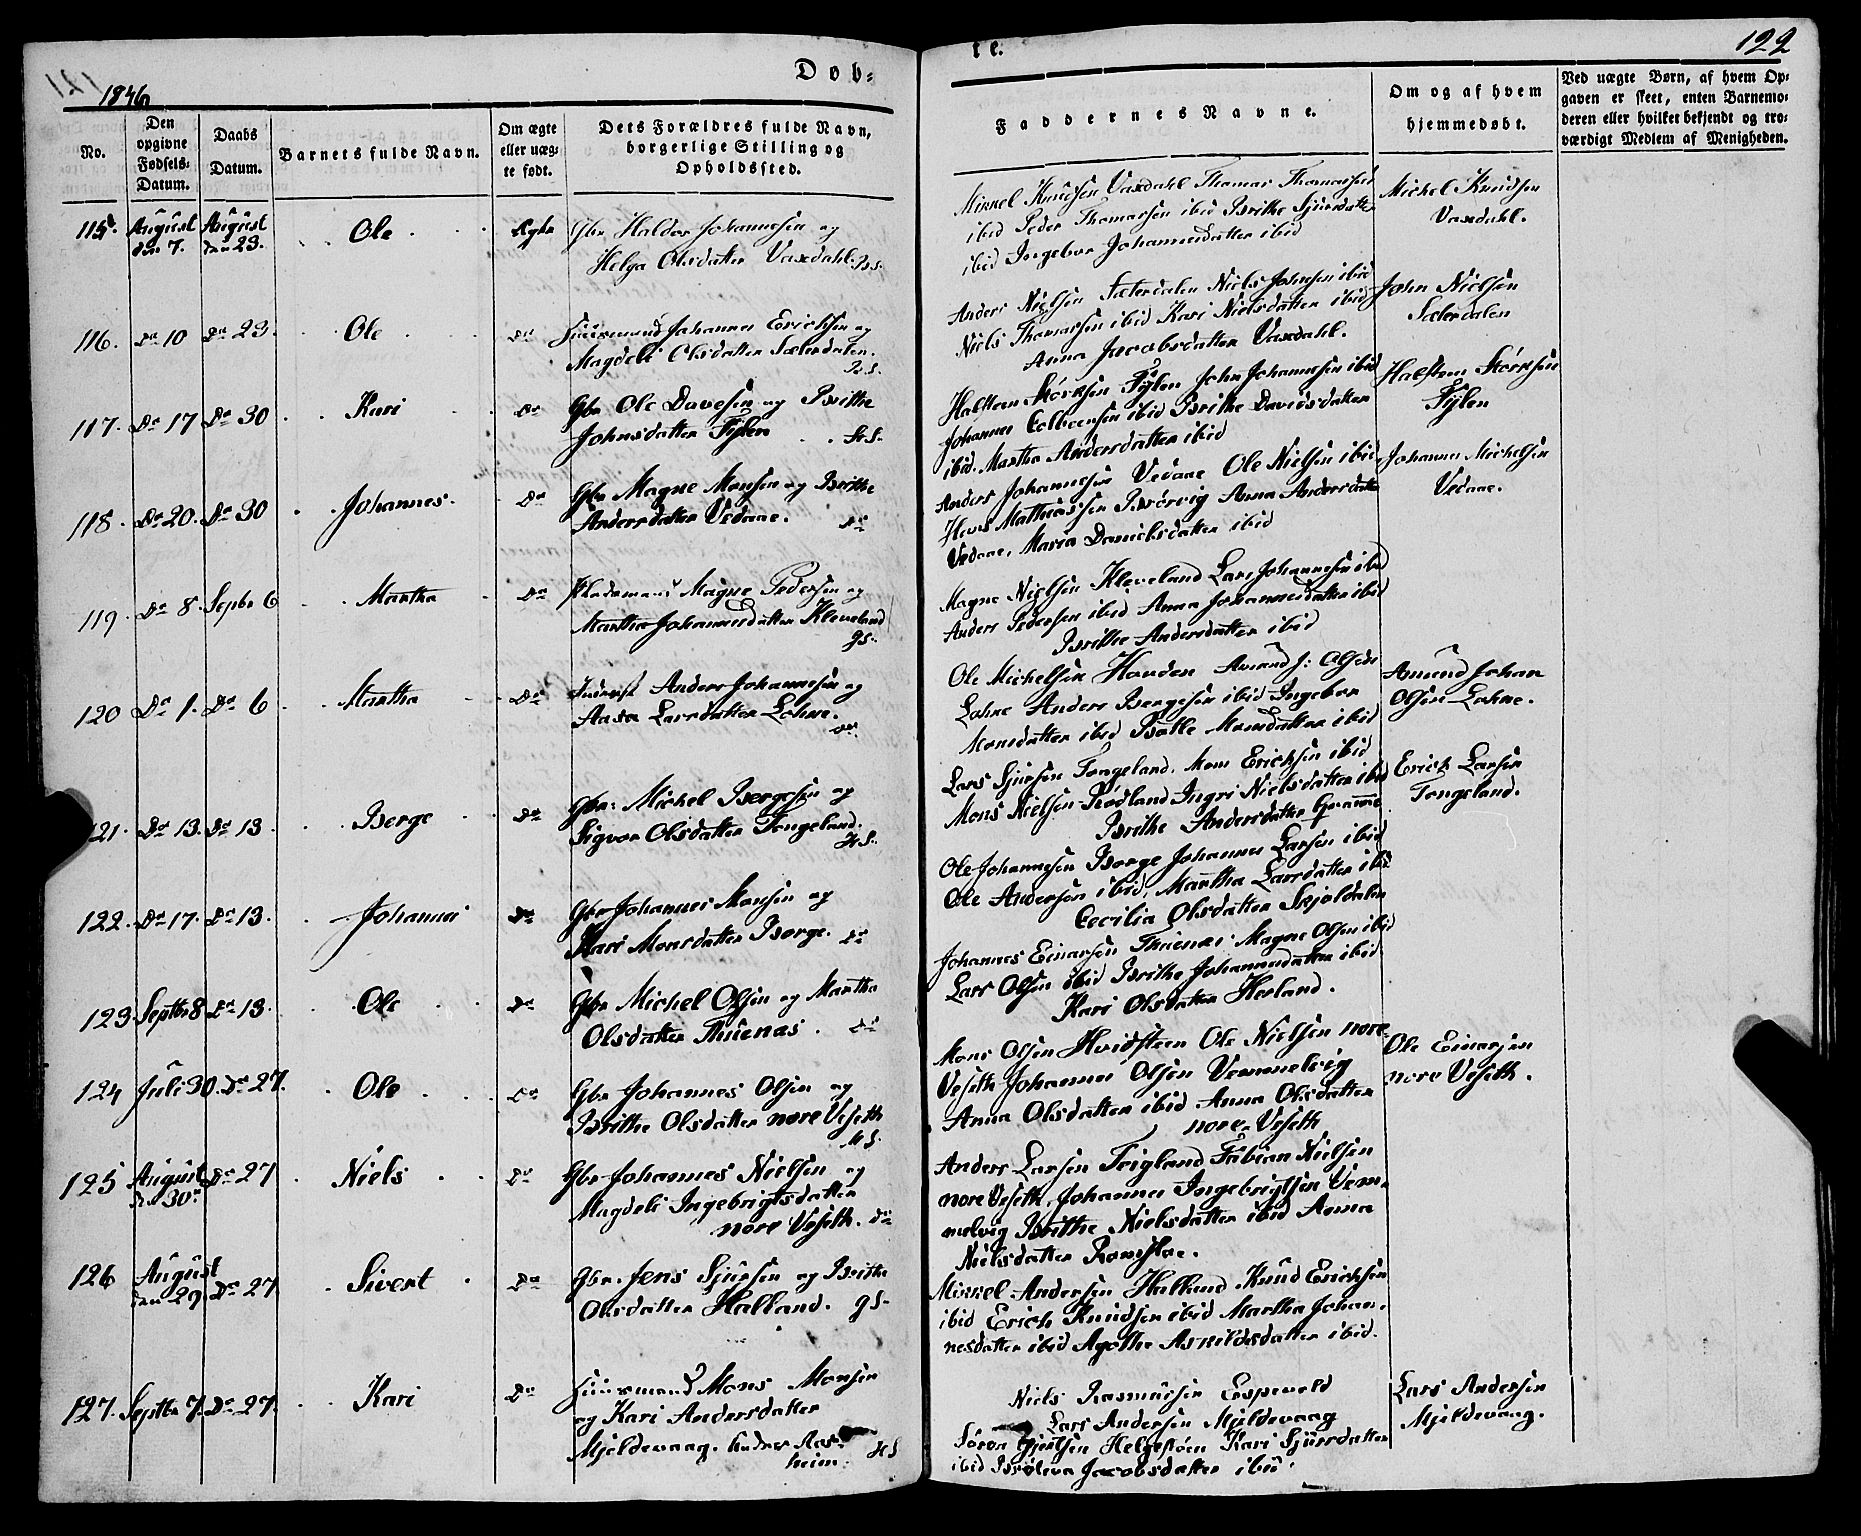 1846
Døb-
te.
122
No.
Den opgivne Fødsels-Datum.
Daabs Datum.
Barnets fulde Navn.
Om ægte eller uæg-te født.
Dets Forældres fulde Navn, borgerlige Stilling og Opholdssted.
Faddernes Navne.
Om og af hvem hjemmedøbt.
Ved uægte Børn, af hvem Op-
gaven er skeet, enten Barnemo-
deren eller hvilket bekjendt og tro-
værdigt Medlem af Menigheden.
115. August den 7. August den 23. Ole Ægte Gbr Haldor Johannesen og
Helga Olsdatter Vaxdahl. B.S.
Mikkel Knudsen Vaxdahl Thomas Thomassen
ibid Peder Thomassen ibid Brithe Sjursdatter
ibid Ingebor Johannesdatter ibid
Michel Knudsen
Vaxdahl.
116. Do 10 Do 23. Ole Do Huusmand Johannes Erichsen og
Magdeli Olsdatter Sæterdalen.
B.S.
Anders Nielsen Sæterdalen Niels Johnsen ibid
Niels Thomassen ibid Kari Nielsdatter ibid
Anna Jacobsdatter Vaxdahl.
John Nielsen
Sæterdalen
117. Do 17 Do 30 Kari Do Gbr Ole Davesen og Brithe
Johnsdatter Fylen
Halsteen Størksen Fylen John Johannesen ibid
Johannes Colbeensen ibid Brithe Davidsdatter
ibid. Martha Andersdatter ibid
Halsteen Størksen
Fylen
118. Do 20. Do 30 Johannes. Do Gbr Magne Monsen og Brithe
Andersdatter Vedaae. Do
Anders Johannesen Vedaae Ole Nielsen ibid
Hans Mathiassen Børvig Anna Andersdatter
Vedaae, Maria Danielsdatter ibid
Johannes Michelsen
Vedaae.
119. Do 8. Septbr 6 Martha Do Pladsmand Magne Pedersen og
Martha Johannesdatter Kleveland
GS.
Magne Nielsen Kleveland Lars Johannesen ibid
Anders Pedersen ibid Anna Johannesdatter ibid
Brithe Andersdatter ibid
120 Do 1. Do 6 Martha Do Inderst Anders Johannesen og
Aasa Larsdatter Lohne.
Do
Ole Michelsen Haugen Amund J: Olsen
Lohne Anders Bergesen ibid Ingebor
Monsdatter ibid Botle Monsdatter ibid
Amund Johan
Olsen Lohne.
121. Do 13. Do 13 Berge Do Gbr: Michel Bergesen og
Sigvor Olsdatter Tongeland.
HS.
Lars Sjursen Tongeland, Mons Erichsen ibid
Mons Nielsen Rødland Ingri Nielsdatter ibid
Brithe Andersdatter Gramme
Erich Larsen
Tongeland.
122. Do 17. Do 13. Johannes Do Gbr Johannes Monsen og
Kari Monsdatter Borge. Do
Ole Johannesen Borge Johannes Larsen ibid
Ole Andersen ibid, Martha Larsdatter ibid
Cecilia Olsdatter Skjoldalen
123. Septbr 8 Do 13. Ole Do Gbr Michel Olsen og Martha
Olsdatter Thuenæs. Do
Johannes Einarsen Thuenæs Magne Olsen ibid
Lars Olsen ibid Brithe Johannesdatter ibid
Kari Olsdatter Herland.
124 Juli 30. Do 27. Ole Do Gbr Johannes Olsen og
Brithe Olsdatter nore Veseth
HS.
Mons Olsen Hvidsteen Ole Nielsen nore
Veseth Johannes Olsen Vemmelvig
Anna Olsdatter ibid Anna Olsdatter
nore Veseth
Ole Einarsen
nore Veseth.
125 August den 30te Do 27 Niels Do Gbr Johannes Nielsen og
Magdeli Ingebrigtsdatter
nore Veseth. Do
Anders Larsen Teigland Fabian Nielsen
nore Veseth, Johannes Ingebrigtsen Vem-
melvig Brithe Nielsdatter ibid Anna
Nielsdatter Ravnstae.
126 August den 29. Do 27 Sivert Do Gbr. Jens Sjursen og Brithe
Olsdatter Halland. GS.
Mikkel Andersen Halland Knud Erichsen
ibid Erich Knudsen ibid Martha Johan-
nesdatter ibid Agothe Askildsdatter ibid.
127. Septbr 7. Do 27. Kari Do Huusmand Mons Monsen
og Kari Andersdatter
Mjeldevaag. under Aas-
heim. HS
Niels Rasmusen Espevold
Lars Andersen Mjeldevaag
Søren Gjertsen Helgestøen Kari Sjursdatter
ibid Jacobsdatter ibid.
Lars Andersen
Mjeldevaag.